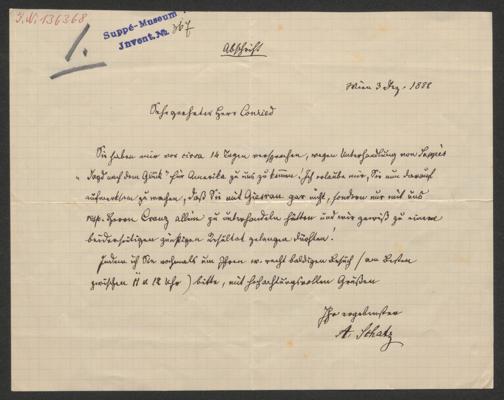 I.N. 136368
1.
Suppé-Museum
Invent. Nr. 367
Abschrift
Wien 3 Dez. 1888
Sehr geehrter Herr Conried
Sie haben mir vor circa 14 Tagen versprochen, wegen Unterhandlung von Suppés
"Jagd nach dem Glück" für Amerika zu uns zu kommen. Ich erlaube mir, Sie nun darauf
aufmerksam zu machen, daß Sie mit gar nicht, sondern nur mit uns
resp. Herrn Cranz allein zu unterhandeln hätten und wir gewiß zu einem
beiderseitigen günstigen Resultat gelangen dürften!
Indem ich Sie nochmals um Ihren w. recht baldigen Besuch (am Besten
zwischen 11 u 12 Uhr) bitte, mit hochachtungsvollen Grüßen
Ihr ergebenster
A. Schatz